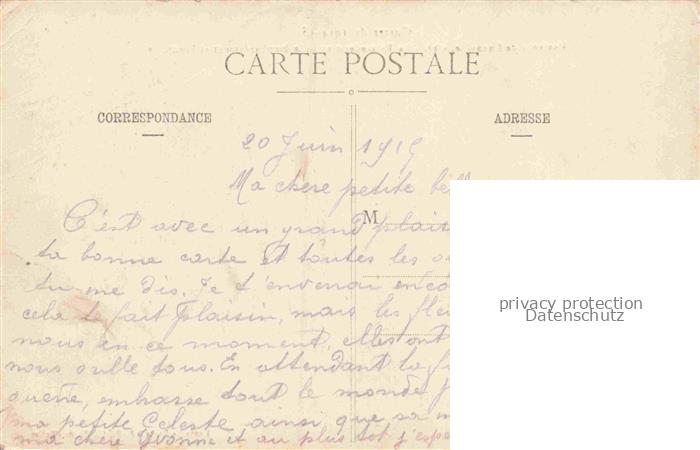 CARTE POSTALE
CORRESPONDANCE
ADRESSE
20 Juin 1915
Ma chere petite
M
C'est avec un grand plais
ta bonne carte et toutes les
tu me dis. Je t'enverai enco
cela te fait plaisir, mais les fle
nous en ce moment, elles ont
nous oublie tous. En attendant la f
guerre, embrasse tout le monde
ma petite Celeste ainsi que sa m
ma chere Yvonne et au plus tot j'espe
privacy protection
Datenschutz